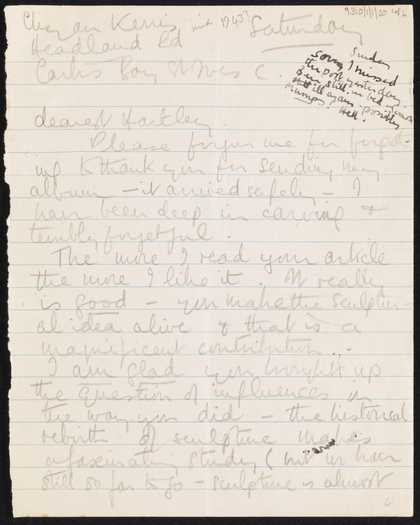 Chy an Kerris mid 1943? Saturday
Headland Rd
Carbis Bay St Ives C.
Sunday
Sorry I missed
the post yesterday
still in bed
still ill again, possibly
mumps! Hell!
dearest Hartley.
Please forgive me for forget-
ing to thank you for sending my
album – it arrived safely – I
have been deep in carving &
terribly forgetful.
The more I read your article
the more I like it. It really
is good – you make the sculptur-
al idea alive & that is a
magnificent contribution. –
I am glad you brought up
the question of influences in
the way you did – the historical
rebirth of sculpture makes
a fascinating study (but we have
still so far to go – sculpture is almost